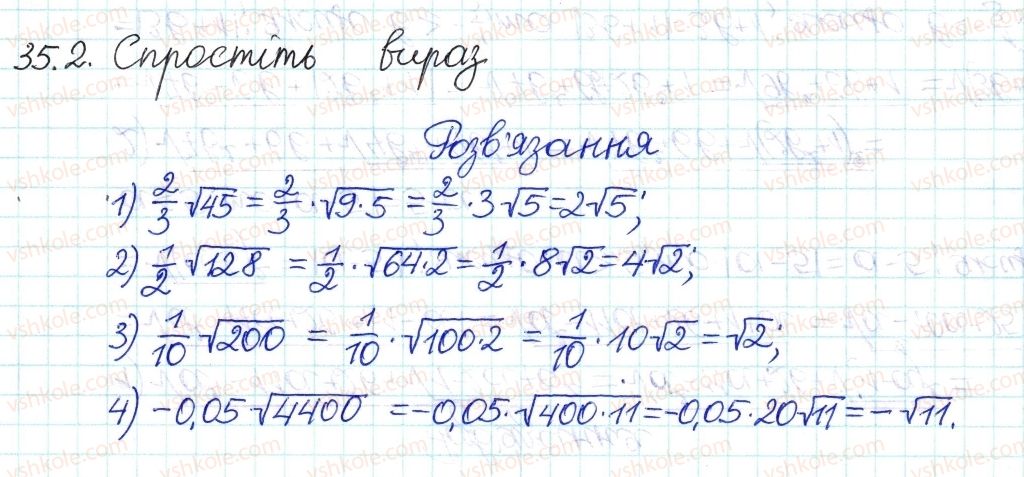 35.2. Спростіть вираз
Розв'язання
1) 2/3 √45 = 2/3 · √9·5 = 2/3 · 3√5 = 2√5;
2) 1/2 · √128 = 1/2 · √64·2 = 1/2 · 8√2 = 4√2;
3) 1/10 √200 = 1/10 · √100·2 = 1/10 · 10√2 = √2;
4) -0,05 · √4400 = -0,05 · √400·11 = -0,05 · 20√11 = -√11.
vshkole.com